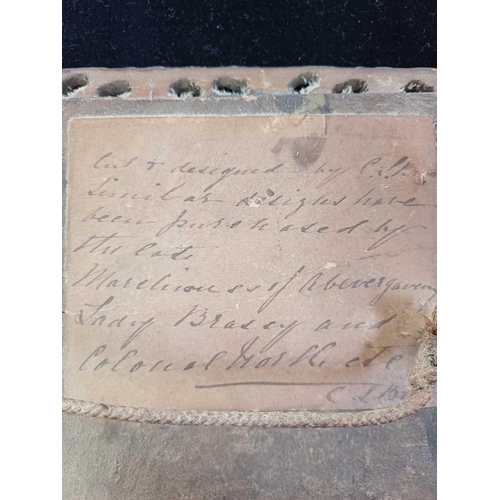 Cut & designed by C.
Similar designs have
been purchased by
the late
Marchioness of Abergavenny
Lady Brasey and
Colonal North etc
C